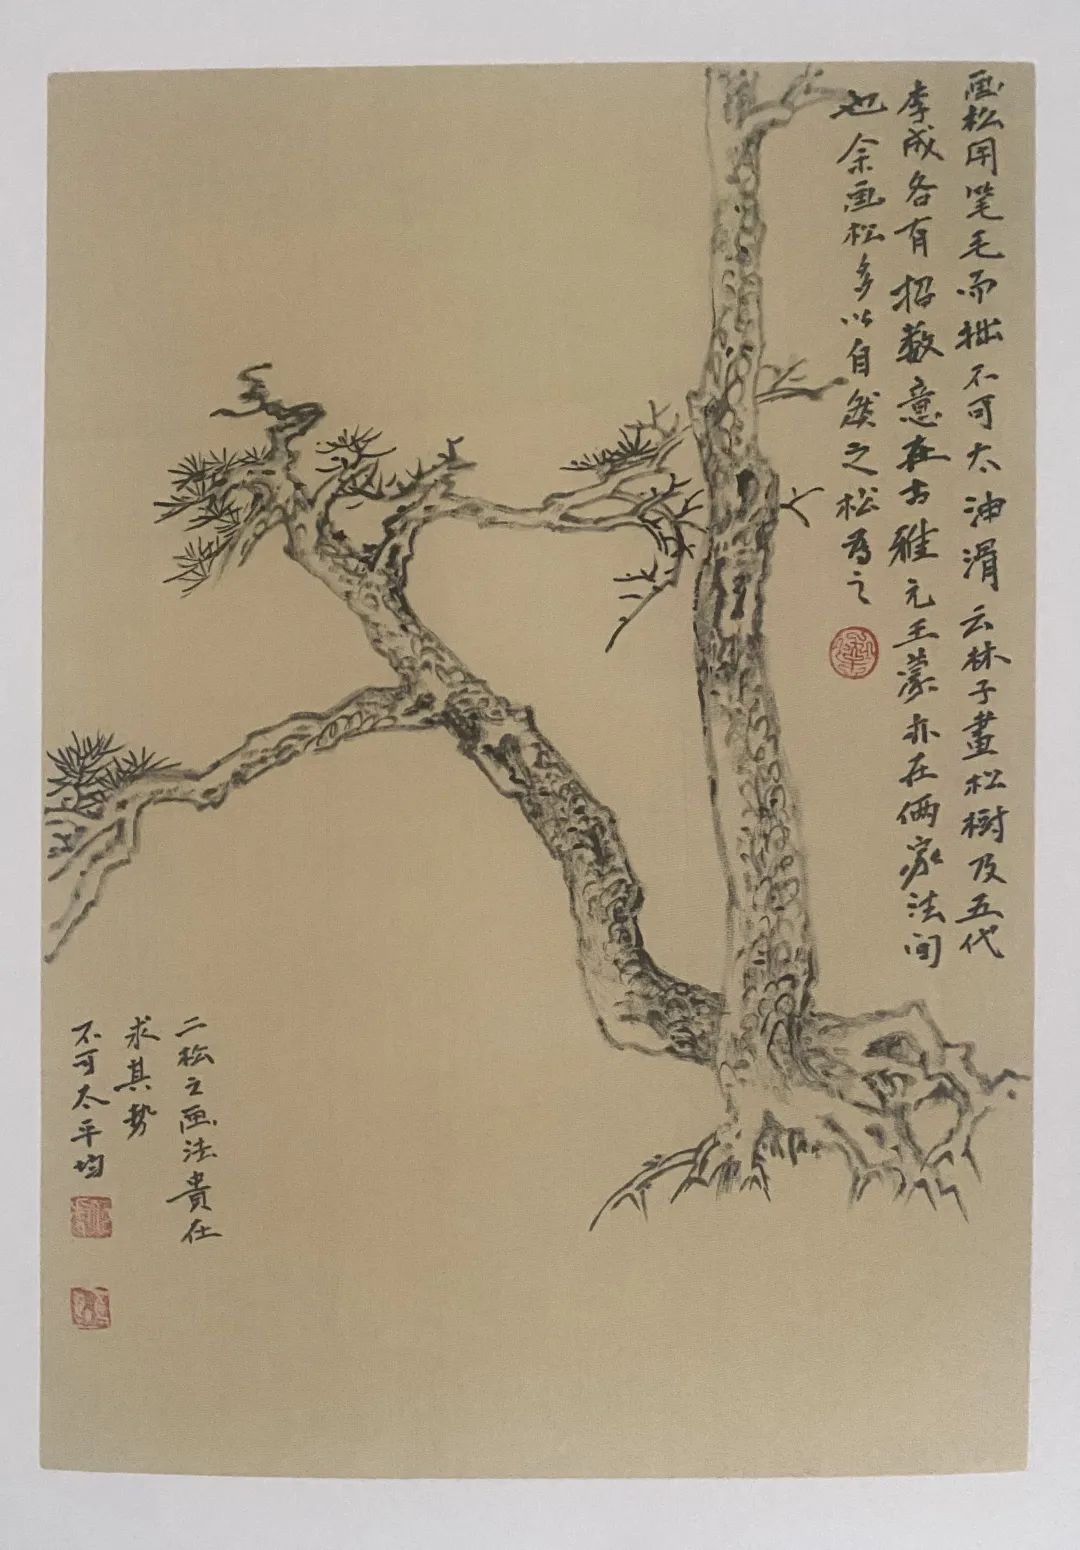 画松用笔毛而拙不可太油滑云林子畫松樹及五代
李成各有招数意在古雅元王蒙亦在俩家法间
也余画松多以自然之松为之
二松之画法貴在
求其势
不可太平均